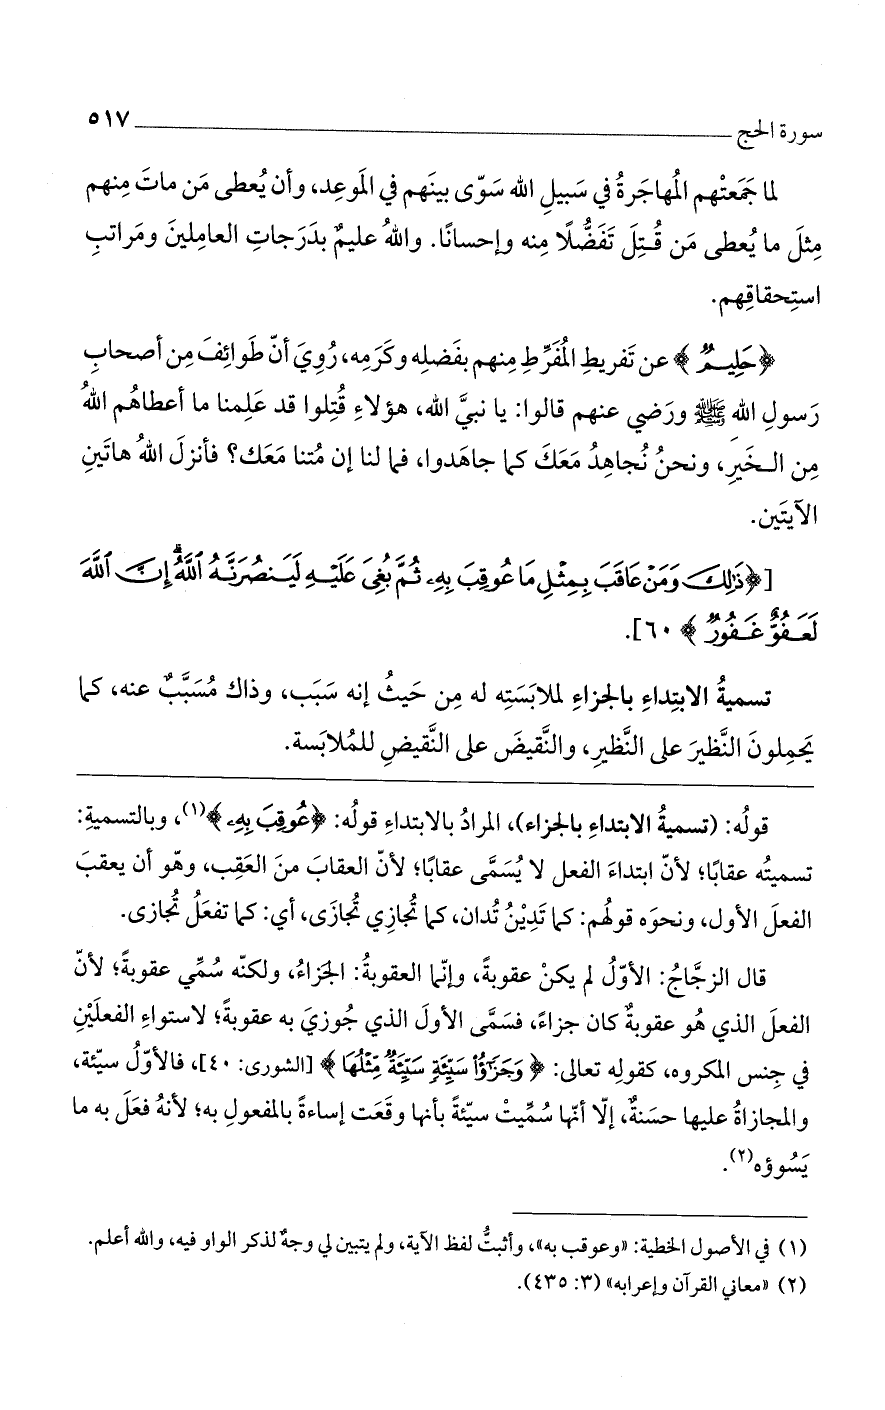 سورة الحج ٥١٧
لما جَمَعَتْهم المُهاجَرةُ في سَبيلِ الله سَوّى بينَهم في المَوعِد، وأن يُعطى مَن ماتَ مِنهم
مِثلَ ما يُعطى مَن قُتِلَ تَفَضُّلًا مِنه وإحسانًا. واللهُ عليمٌ بدَرَجاتِ العامِلينَ ومَراتبِ
استِحقاقِهم.
﴿حَلِيمٌ﴾ عن تَفريطِ المُفَرِّطِ مِنهم بفَضلِه وكَرَمِه، رُوِيَ أنّ طَوائفَ مِن أصحابِ
رَسولِ الله ﷺ ورَضي عنهم قالوا: يا نبيَّ الله، هؤلاءِ قُتِلوا قد عَلِمنا ما أعطاهُم اللهُ
مِن الـخَيرِ، ونحنُ نُجاهِدُ مَعَكَ كما جاهَدوا، فما لنا إن مُتنا مَعَك؟ فأنزلَ اللهُ هاتَينِ
الآيتَين.
[﴿ذَٰلِكَ وَمَنْ عَاقَبَ بِمِثْلِ مَا عُوقِبَ بِهِۦ ثُمَّ بُغِىَ عَلَيْهِ لَيَنصُرَنَّهُ ٱللَّهُ ۗ إِنَّ ٱللَّهَ
لَعَفُوٌّ غَفُورٌ﴾ ٦٠].
تسميةُ الابتِداءِ بالجزاءِ لملابَسَتِه له مِن حَيثُ إنه سَبَب، وذاك مُسَبَّبٌ عنه، كما
يَحمِلونَ النَّظيرَ على النَّظيرِ، والنَّقيضَ على النَّقيضِ للمُلابَسة.
قولُه: (تسميةُ الابتداءِ بالجزاء)، المرادُ بالابتداءِ قولُه: ﴿عُوقِبَ بِهِۦ﴾(١)، وبالتسميةِ:
تسميتُه عقابًا؛ لأنّ ابتداءَ الفعل لا يُسَمَّى عقابًا؛ لأنّ العقابَ منَ العَقِب، وهّو أن يعقبَ
الفعلَ الأول، ونحوَه قولُهم: كما تَدِيْنُ تُدان، كما تُجازِي تُجازَى، أي: كما تفعَلُ تُجازى.
قال الزجَّاجُ: الأوّلُ لم يكنْ عقوبةً، وإنّما العقوبةُ: الجزاءُ، ولكنّه سُمِّي عقوبةً؛ لأنّ
الفعلَ الذي هُو عقوبةٌ كان جزاءً، فسَمَّى الأولَ الذي جُوزيَ به عقوبةً؛ لاستواءِ الفعلَيْنِ
في جِنس المكروه، كقولِه تعالى: ﴿وَجَزَٰٓؤُا۟ سَيِّئَةٍ سَيِّئَةٌ مِّثْلُهَا﴾ [الشورى: ٤٠]، فالأوّلُ سيّئة،
والمجازاةُ عليها حسَنةٌ، إلّا أنّها سُمِّيتْ سيّئةً بأنها وقَعَت إساءةً بالمفعولِ به؛ لأنهُ فعَلَ به ما
يَسُوؤه(٢).
(١) في الأصول الخطية: «وعوقب به»، وأثبتُّ لفظ الآية، ولم يتبين لي وجهٌ لذكر الواو فيه، والله أعلم.
(٢) «معاني القرآن وإعرابه» (٣: ٤٣٥).